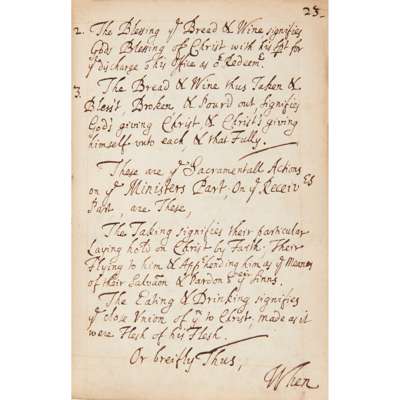 23.
2. The Blessing yᵉ Bread & Wine signifies
Gods Blessing of Christ with his Spt for
yᵉ discharge of his Office as oʳ Redeemʳ.
3. The Bread & Wine thus Taken &
Bless't, Broken & Pour'd out, signifies
God's giving Christ, & Christ's giving
himself unto each, & that Fully.
These are yᵉ Sacramentall Actions
on yᵉ Ministers Part, On yᵉ Receivᵉʳˢ
Part, are These,
The Taking signifies their particular
Laying hold on Christ by Faith: Their
Flying to him & Appʳhending him, as yᵉ Meanes
of their Salvaon & Pardon of yᵉⁱʳ Sinns.
The Eating & Drinking signifies
yᵉ close Union of yᵐ to Christ, made as it
were Flesh of his Flesh.
Or breifly Thus;
When